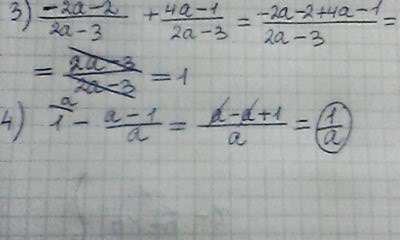 3) (-2a-2)/(2a-3) + (4a-1)/(2a-3) = (-2a-2+4a-1)/(2a-3) =
= (2a-3)/(2a-3) = 1
4) 1^a - (a-1)/a = (a-a+1)/a = 1/a